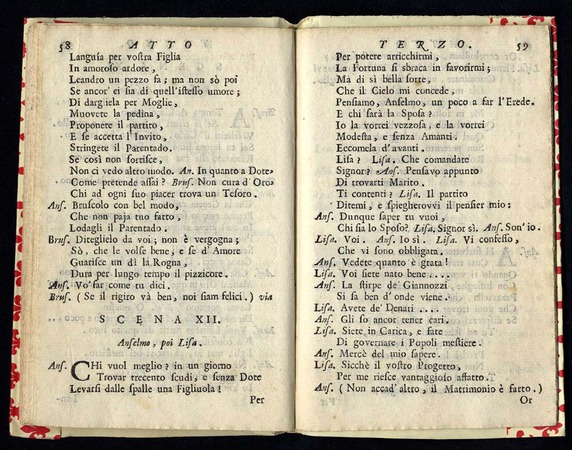 58 ATTO
Languía per vostra Figlia
In amoroso ardore,
Leandro un pezzo fa; ma non sò poi
Se ancor' ei sia di quell'istesso umore;
Di dargiela per Moglie,
Muovete la pedina,
Proponete il partito,
E se accetta l'Invito,
Stringete il Parentado.
Se così non sortisce,
Non ci vedo altro modo. An. In quanto a Dote
Come pretende assai? Brus. Non cura d'Oro
Chi ad ogni suo piacer trova un Tesoro.
Ans. Bruscolo con bel modo,
Che non paja tuo fatto,
Lodagli il Parentado.
Brus. Diteglielo da voi; non è vergogna;
Sò, che le volse bene, e se d' Amore
Guarisce un dì la Rogna,
Dura per lungo tempo il pizzicore.
Ans. Vo' far come tu dici.
Brus. (Se il rigiro và ben, noi siam felici.) via
SCENA XII.
Anselmo, poi Lisa.
Ans. CHi vuol meglio? in un giorno
Trovar trecento scudi, e senza Dote
Levarsi dalle spalle una Figliuola!
Per
TERZO. 59
Per potere arricchirmi,
La Fortuna si sbraca in favorirmi;
Ma di sì bella sorte,
Che il Cielo mi concede,
Pensiamo, Anselmo, un poco a far l'Erede.
E chi sarà la Sposa?
Io la vorrei vezzosa, e la vorrei
Modesta, e senza Amanti.
Eccomela d'avanti.
Lisa? Lisa. Che comandate
Signor? Ans. Pensavo appunto
Di trovarti Marito.
Ti contenti? Lisa. Il partito
Ditemi, e spiegherovvi il pensier mio:
Ans. Dunque saper tu vuoi,
Chi sia lo Sposo? Lisa. Signor sì. Ans. Son' io.
Lisa. Voi. Ans. Io sì. Lisa. Vi confesso,
Che vi sono obbligata.
Ans. Vedete quanto è grata!
Lisa. Voi siete nato bene....
Ans. La stirpe de' Giannozzi
Si sa ben d'onde viene.
Lisa. Avete de' Denati ....
Ans. Gli so ancor tener cari.
Lisa. Siete in Carica, e fate
Di governare i Popoli mestiere.
Ans. Mercè del mio sapere.
Lisa. Sicchè il vostro Progetto,
Per me riesce vantaggioso affatto.
Ans. (Non accad' altro, il Matrimonio è fatto.)
Or